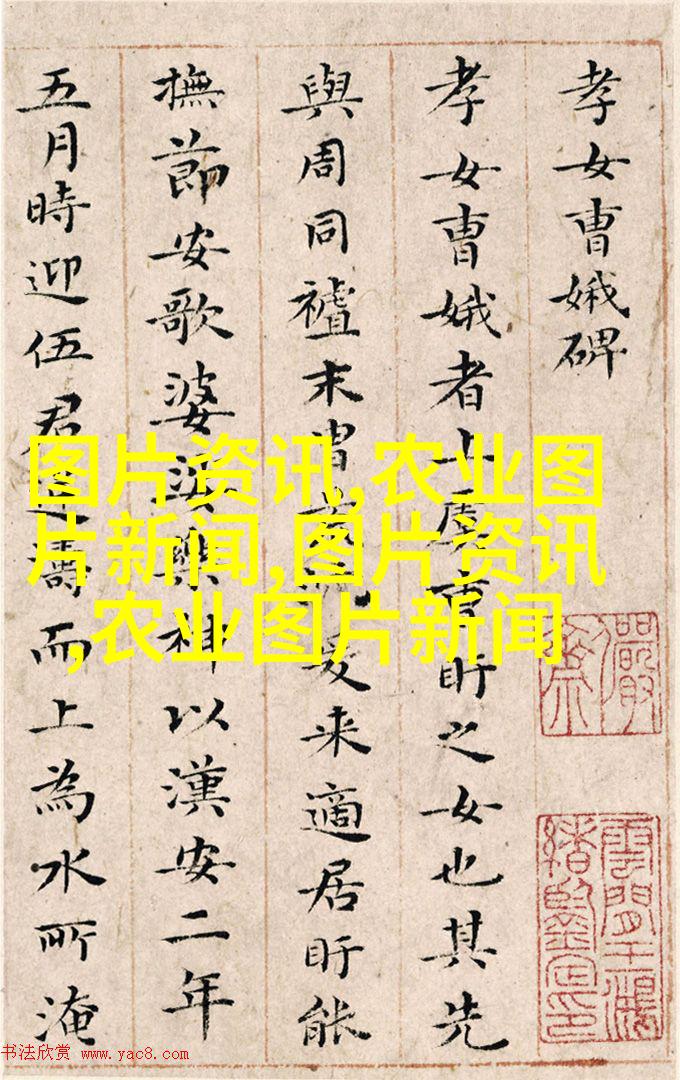 孝女曹娥碑
孝女曹娥者上虞曹盱之女也其先
與周同末胄爰来適居盱能
撫節安歌婆娑樂神以漢安二年
五月時迎伍君逆濤而上為水所淹
图片资讯,农业图
片新闻,图片资讯
,农业图片新闻
雲間王鴻
緒鑒定印
书法欣赏 www.yac8.com